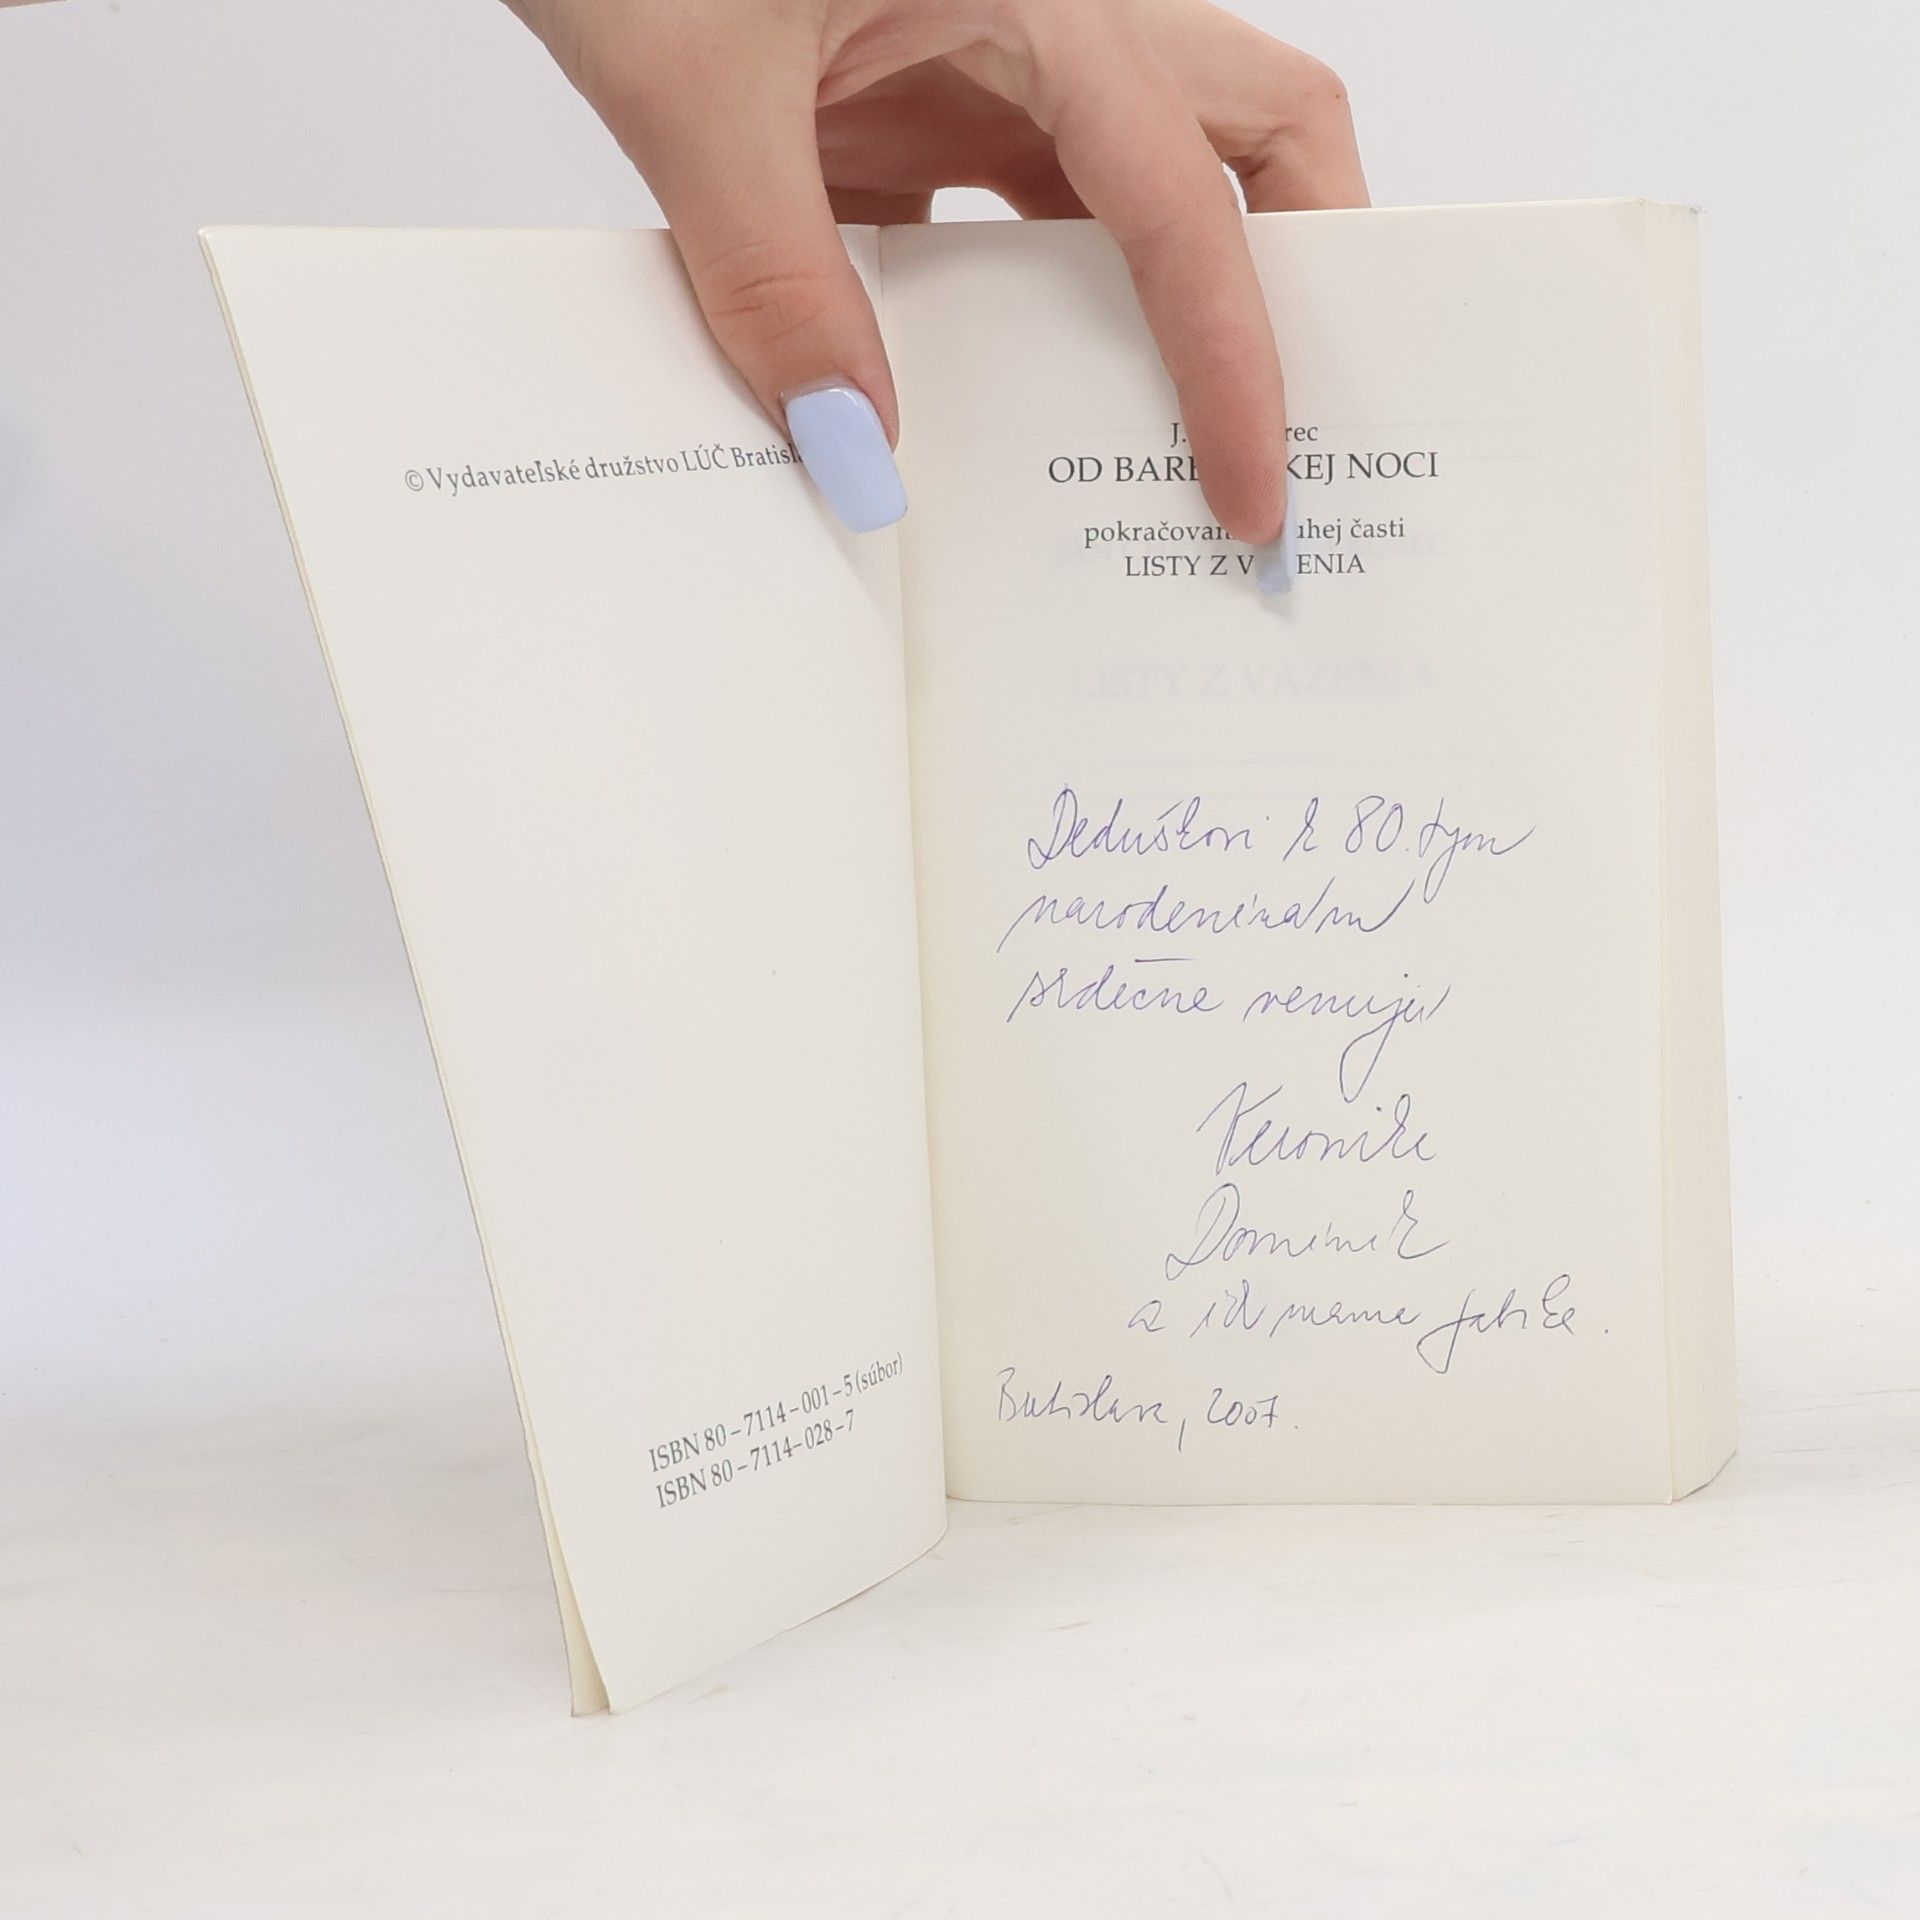 © Vydavateľské družstvo LÚČ Bratisl
ISBN 80–7114–001–5 (súbor)
ISBN 80–7114–028–7
J. rec
OD BAR KEJ NOCI
pokračovan uhej časti
LISTY Z V ENIA
LISTY Z VÄZENIA
Deduškovi k 80.tym
narodeninám
srdečne venujú
Veronika
Dominik
a ich mama
Bratislava, 2007.